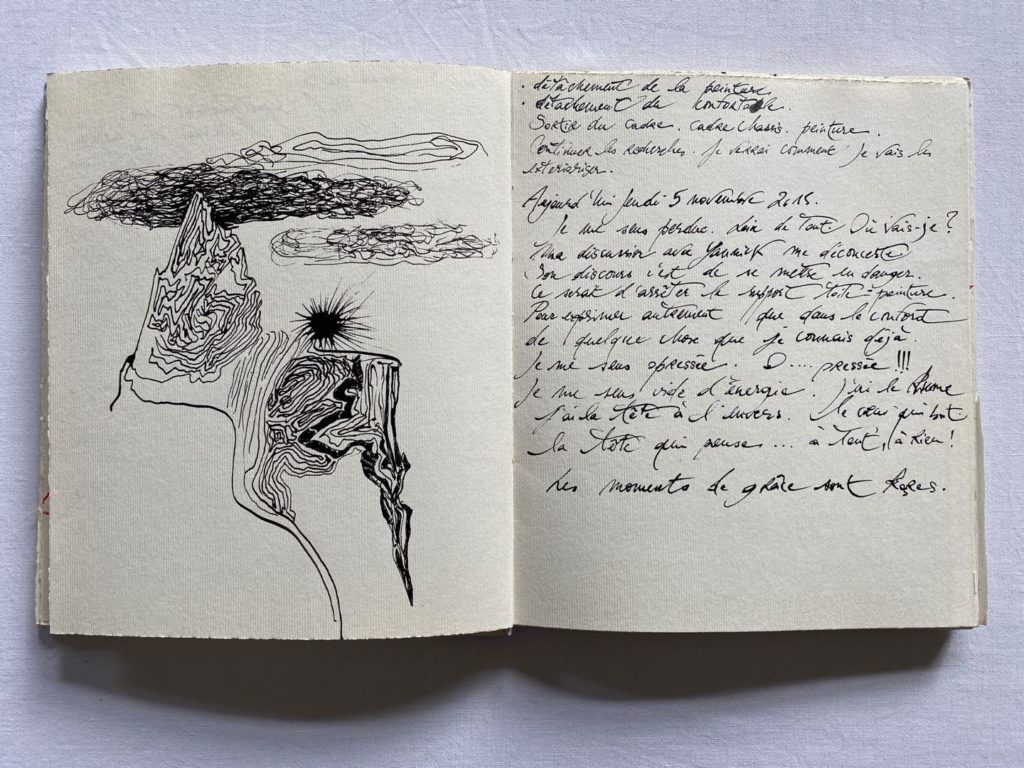 . détachement de la peinture
. détachement du confortable.
Sortir du cadre. cadre chassis. peinture.
Continuer les recherches. Je verrai comment je vais les
exterioriser.
Aujourd'hui Jeudi 5 novembre 2015.
Je me sens perdue. Loin de tout Où vais-je?
Une discussion avec Yannick me déconcerte
Son discours c'est de se mettre en danger.
Ce serait d'arrêter le support toile-peinture.
Pour exprimer autrement que dans le confort
de quelque chose que je connais déjà.
Je me sens opressée. O....pressée !!!
Je me sens vide d'énergie. J'ai le Rhume
j'ai la tête à l'envers. le coeur qui bat
la tête qui pense ... à tout, à rien!
Les moments de grâce sont Rares.